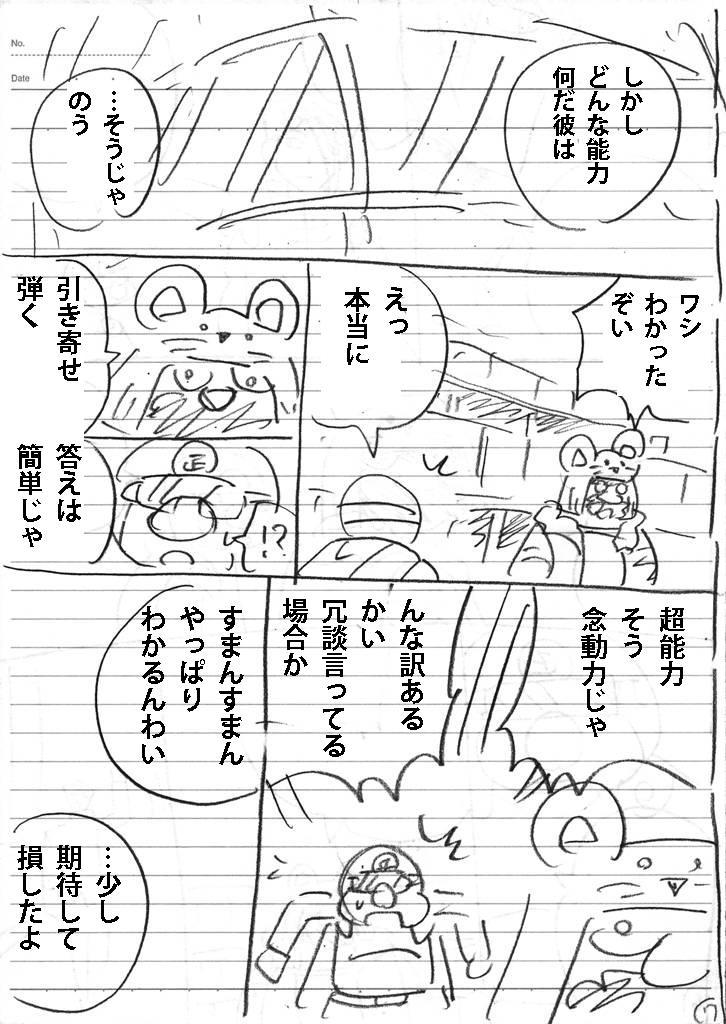 No.
Date
しかし
どんな能力
何だ彼は
…そうじゃ
のう
ワシ
わかった
ぞい
えっ
本当に
引き寄せ
弾く
答えは
簡単じゃ
正
!?
超能力
そう
念動力じゃ
んな訳ある
かい
冗談言ってる
場合か
すまんすまん
やっぱり
わかるんわい
…少し
期待して
損したよ
17